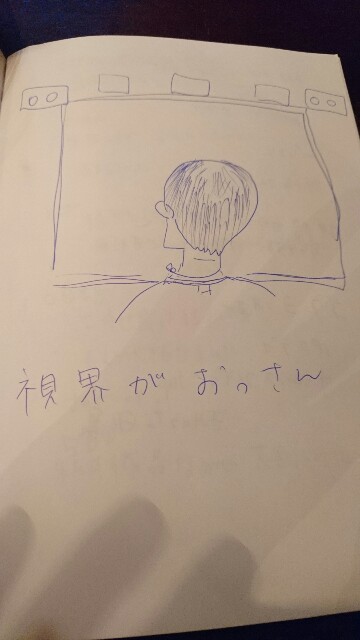 視界がおっさん